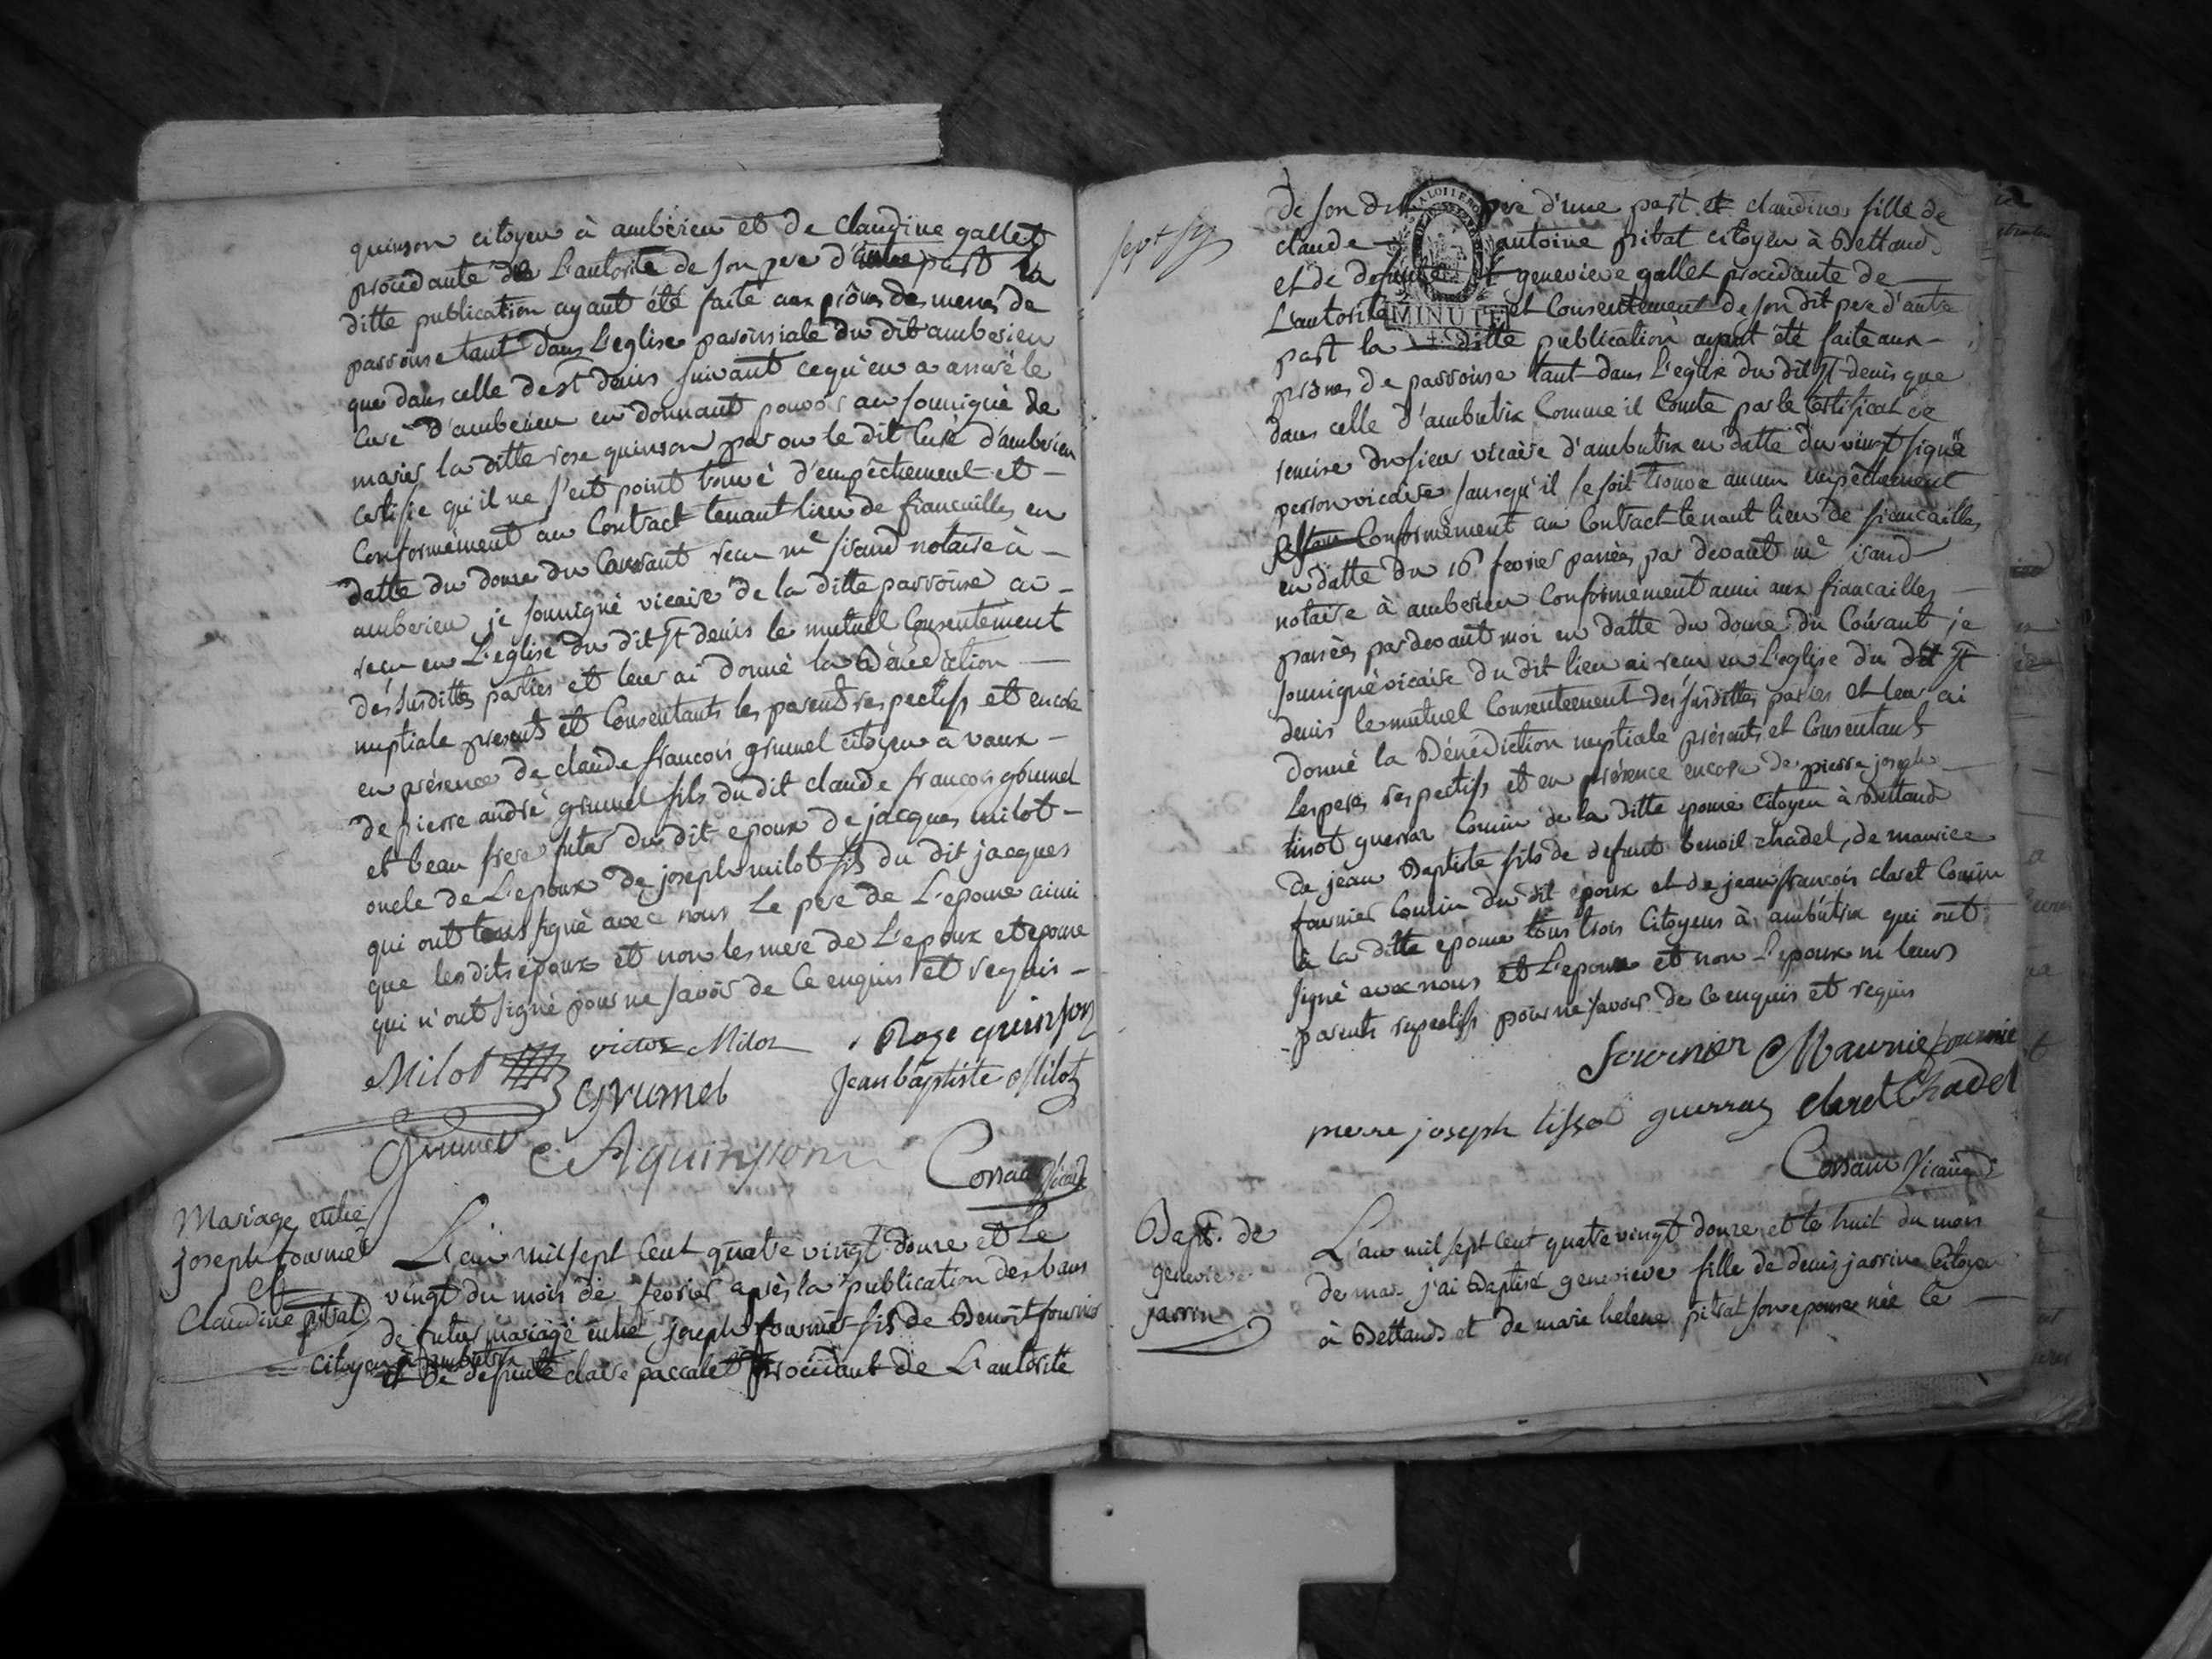 quinson citoyen à ambérieu et de claudine gallet
procédante de L'autorité de son pere d'autre part la
ditte publication ayant été faite aux prônes des messes de
parroisse tant dans L'eglise paroissiale du dit amberieu
que dans celle de st denis suivant ce qu'en a assuré le
Curé d'amberieu en donnant pouvoir au soussigné de
marier la ditte rose quinson par ou le dit Curé d'amberieu
certifie qu'il ne s'est point trouvé d'empêchement et
Conformément au Contract tenant lieu de fiancailles en
datte du douze du Courant recu me sirand notaire à
amberieu je soussigné vicaire de la ditte parroisse ai
recu en L'eglise du dit st denis le mutuel Consentement
des susdittes parties et leur ai donné la Bénédiction
nuptiale présents et Consentants les parents respectifs et encore
en présence de claude francois grumel citoyen à vaux
de pierre andré grumel fils du dit claude francois grumel
et beau frere futur du dit epoux de jacques milot
oncle de L'epoux de joseph milot fils du dit jacques
qui ont tous signé avec nous Le pere de L'epouse ainsi
que les dits époux et non les mere de L'epoux et epouse
qui n'ont signé pour ne savoir de Ce enquis et requis
Milot victor Milot Roze quinson
Grumel Jean baptiste Milot
Grumel A quinson Cossain Vicaire
Mariage entre
joseph fournier
et
Claudine pitrat
L'an mil sept Cent quatre vingt douze et Le
vingt du mois de fevrier après la publication des bans
de futur mariage entre joseph fournier fils de Benoit fournier
citoyen à ambutrix
et de defunte claire paccalet procédant de L'autorité
de son dit pere d'une part et claudine fille de
claude antoine pitrat citoyen à Bettand
et de defunte genevieve gallet procédante de
L'autorité et Consentement de son dit pere d'autre
MINUTE
part la ditte publication ayant été faite aux
prônes de parroisse tant dans L'eglise du dit st denis que
dans celle d'ambutrix Comme il Conste par le Certificat ce
remire du sieur vicaire d'ambutrix en datte du vingt signé
person vicaire sans qu'il se soit trouvé aucun empêchement
Conformément au Contract tenant lieu de fiancailles
en datte du 16 fevrier passées par devant me sirand
notaire à amberieu Conformément aussi aux fiancailles
passées par devant moi en datte du douze du Courant je
soussigné vicaire du dit lieu ai recu en L'eglise du dit st
denis le mutuel Consentement des susdittes parties et leur ai
donné la Bénédiction nuptiale présents et Consentants
Les peres respectifs et en présence encore de pierre joseph
tissot guerraz Cousin de la ditte epouse Citoyen à Bettand
de jean Baptiste fils de defunt benoit chadel, de maurice
fournier Cousin du dit époux et de jean francois claret Cousin
à la ditte epouse tous trois Citoyens à ambutrix qui ont
signé avec nous et L'epouse et non L'epoux ni leurs
parents respectifs pour ne savoir de Ce enquis et requis
fournier Maurice fournier
pierre joseph tissot guerraz claret Chadel
Cossain Vicaire
Bapt. de
genevieve
jarrin
L'an mil sept cent quatre vingt douze et le huit du mois
de mars j'ai Baptisé genevieve fille de denis jarrin Citoyen
à Bettand et de marie helene pitrat son epouse née le